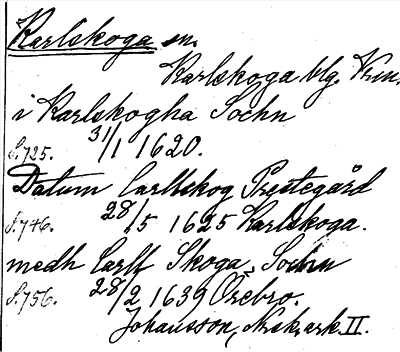 Karlskoga sn.
Karlskoga blg. Krm.
i Karlskogha Sochn
S. 725. 31/1 1620.
Datum Carllskog Prestegård
S. 746. 28/5 1625 Karlskoga.
medh Carll Skoga Sochn
S. 756. 28/2 1639 Örebro.
Johansson, Norask.ark. II.